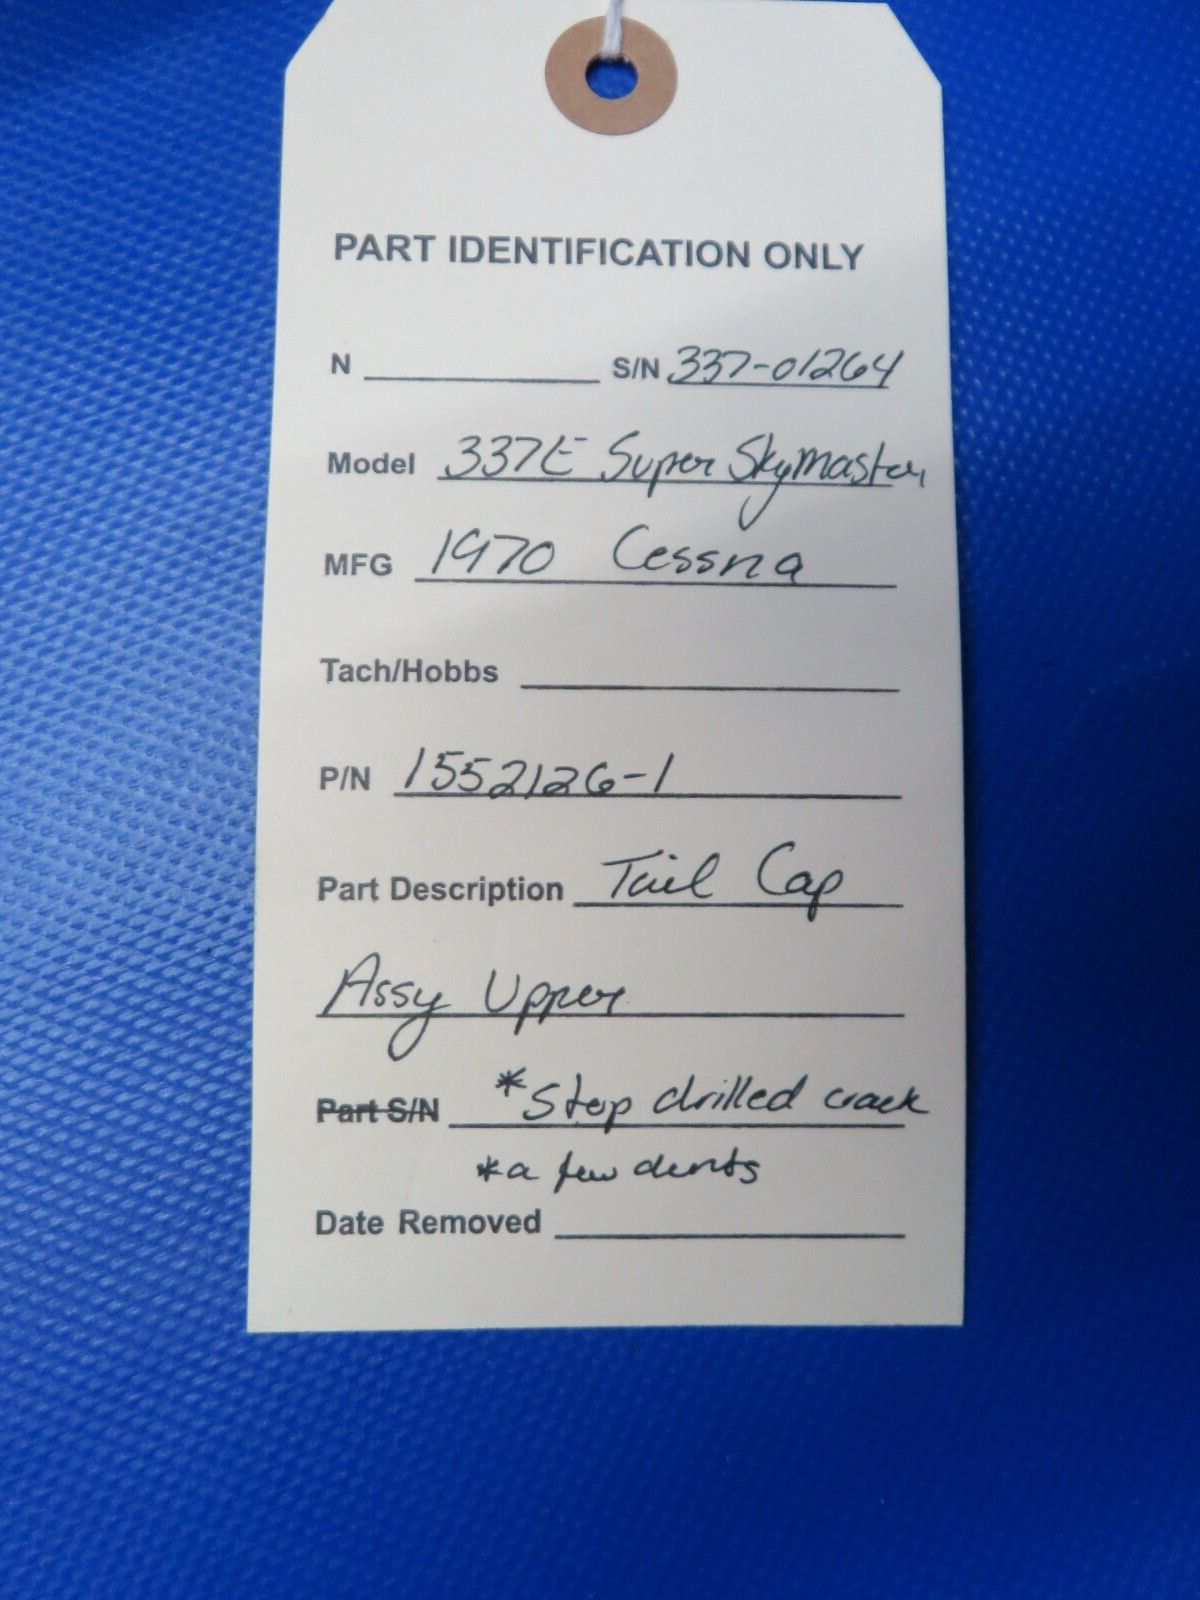 PART IDENTIFICATION ONLY
N S/N 337-01264
Model 337E Super Skymaster
MFG 1970 Cessna
Tach/Hobbs
P/N 1552126-1
Part Description Tail Cap
Assy Upper
Part S/N *Stop drilled crack
*a few dents
Date Removed